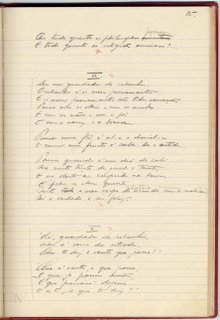 pensam
Que tudo quanto os philosophos
E tudo quanto as religiões ensinam?
IX
Sou um guardador de rebanhos.
O rebanho é os meus pensamentos
E os meus pensamentos são todos sensações.
Penso com os olhos e com os ouvidos
E com as mãos e os pés
E com o nariz e a bocca.
Pensar uma flor é vel-a e cheiral-a
E comer um fructo é saber-lhe o sentido.
Porisso quando n'um dia de calor
Me sinto triste de
E me deito ao comprido na herva,
E fecho os olhos quentes,
Sinto todo o meu corpo deitado na realidade,
Sei a verdade e sou feliz.
X
"Olá, guardador de rebanhos,
Ahi á beira da estrada,
Que te diz o vento que passa?"
"Que é vento, e que passa,
E que já passou antes,
E que passará depois.
E a ti o que te diz?"